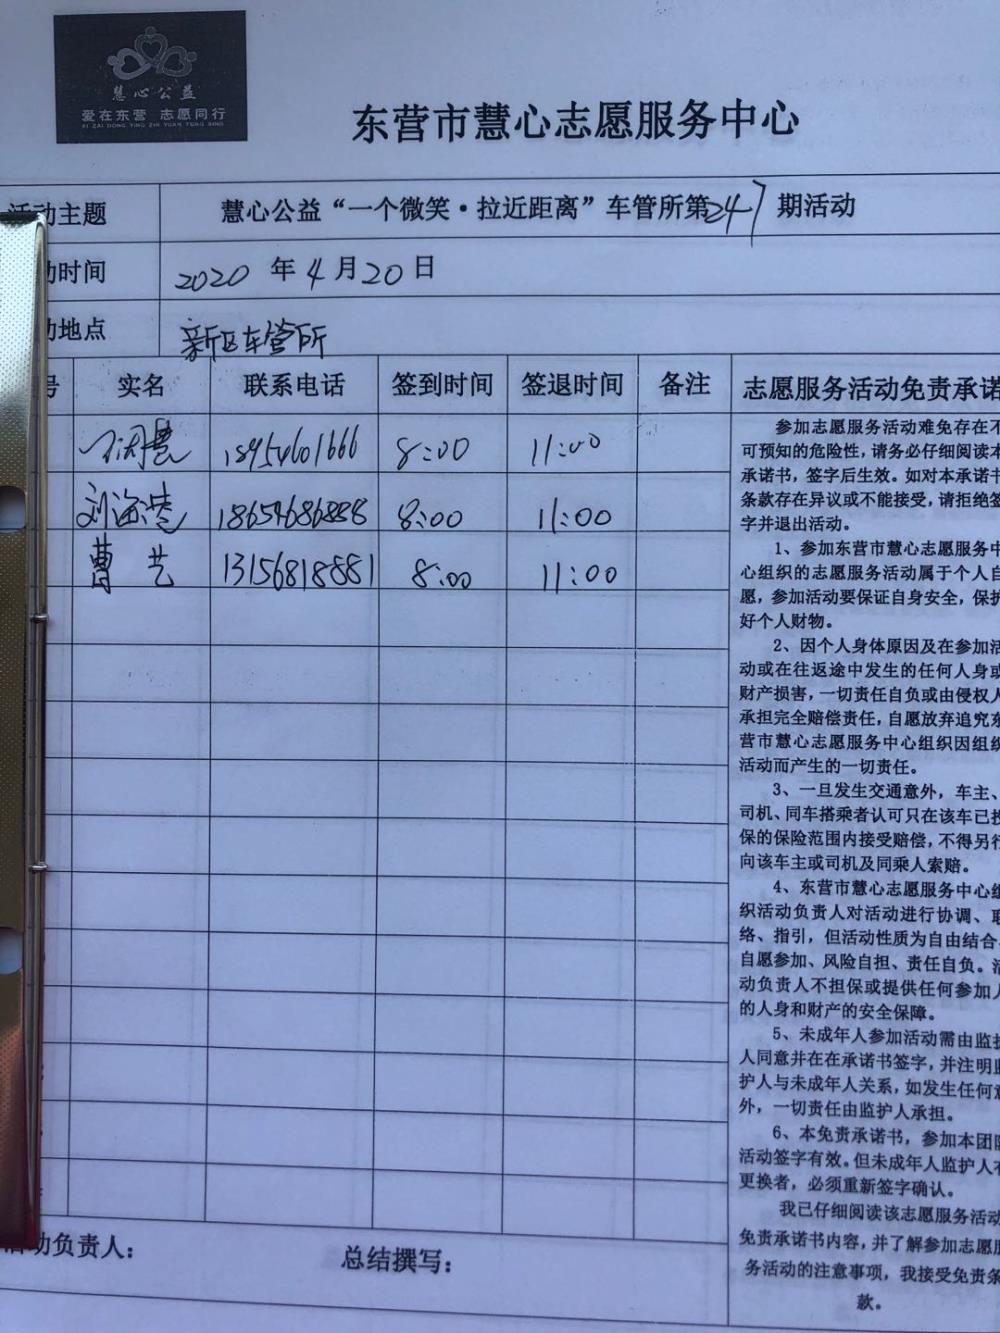 慧心公益
爱在东营 志愿同行
AI ZAI DONG YING ZHI YUAN TONG XING
东营市慧心志愿服务中心
活动主题 慧心公益“一个微笑·拉近距离”车管所第247期活动
动时间 2020年4月20日
动地点 新区车管所
号 实名 联系电话 签到时间 签退时间 备注
18954601666 8:00 11:00
刘海 18654686888 8:00 11:00
曹艺 13156818881 8:00 11:00
志愿服务活动免责承诺
参加志愿服务活动难免存在不
可预知的危险性，请务必仔细阅读本
承诺书，签字后生效。如对本承诺书
条款存在异议或不能接受，请拒绝签
字并退出活动。
1、参加东营市慧心志愿服务中
心组织的志愿服务活动属于个人自
愿，参加活动要保证自身安全，保护
好个人财物。
2、因个人身体原因及在参加活
动或在往返途中发生的任何人身或
财产损害，一切责任自负或由侵权人
承担完全赔偿责任，自愿放弃追究东
营市慧心志愿服务中心组织因组织
活动而产生的一切责任。
3、一旦发生交通意外，车主、
司机、同车搭乘者认可只在该车已投
保的保险范围内接受赔偿，不得另行
向该车主或司机及同乘人索赔。
4、东营市慧心志愿服务中心组
织活动负责人对活动进行协调、联
络、指引，但活动性质为自由结合、
自愿参加、风险自担、责任自负。活
动负责人不担保或提供任何参加人
的人身和财产的安全保障。
5、未成年人参加活动需由监护
人同意并在在承诺书签字，并注明监
护人与未成年人关系，如发生任何意
外，一切责任由监护人承担。
6、本免责承诺书，参加本团队
活动签字有效。但未成年人监护人有
更换者，必须重新签字确认。
我已仔细阅读该志愿服务活动
免责承诺书内容，并了解参加志愿服
务活动的注意事项，我接受免责条
款。
活动负责人： 总结撰写：